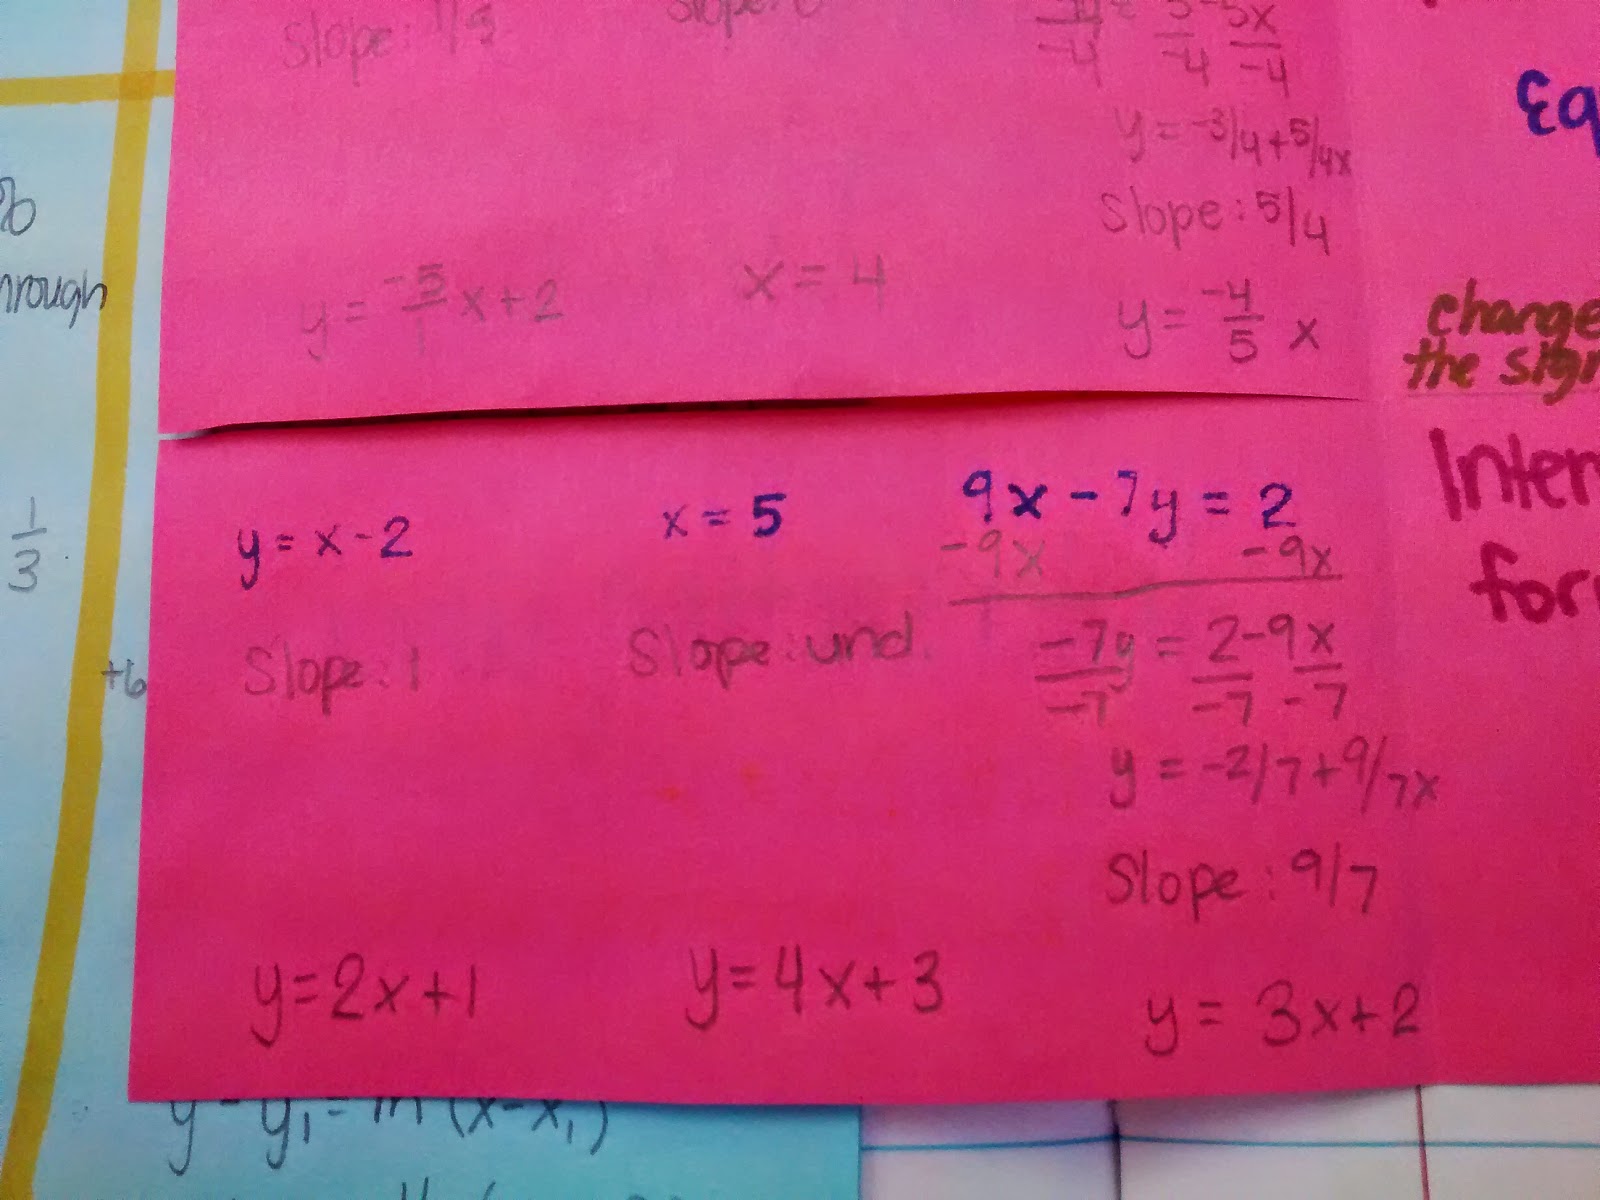 Slope: 1/5
Slope: 0
-4 -4 -4
y = -3/4 + 5/4x
Slope: 5/4
y = -5/1 x + 2
x = 4
y = -4/5 x
Eq
change
the sign
Inter
for
hrough
1/3
+6
y = x - 2
Slope: 1
y = 2x + 1
x = 5
Slope: und.
y = 4x + 3
9x - 7y = 2
-9x -9x
-7y = 2 - 9x
-7 -7 -7
y = -2/7 + 9/7x
Slope: 9/7
y = 3x + 2
y - y₁ = m (x - x₁)